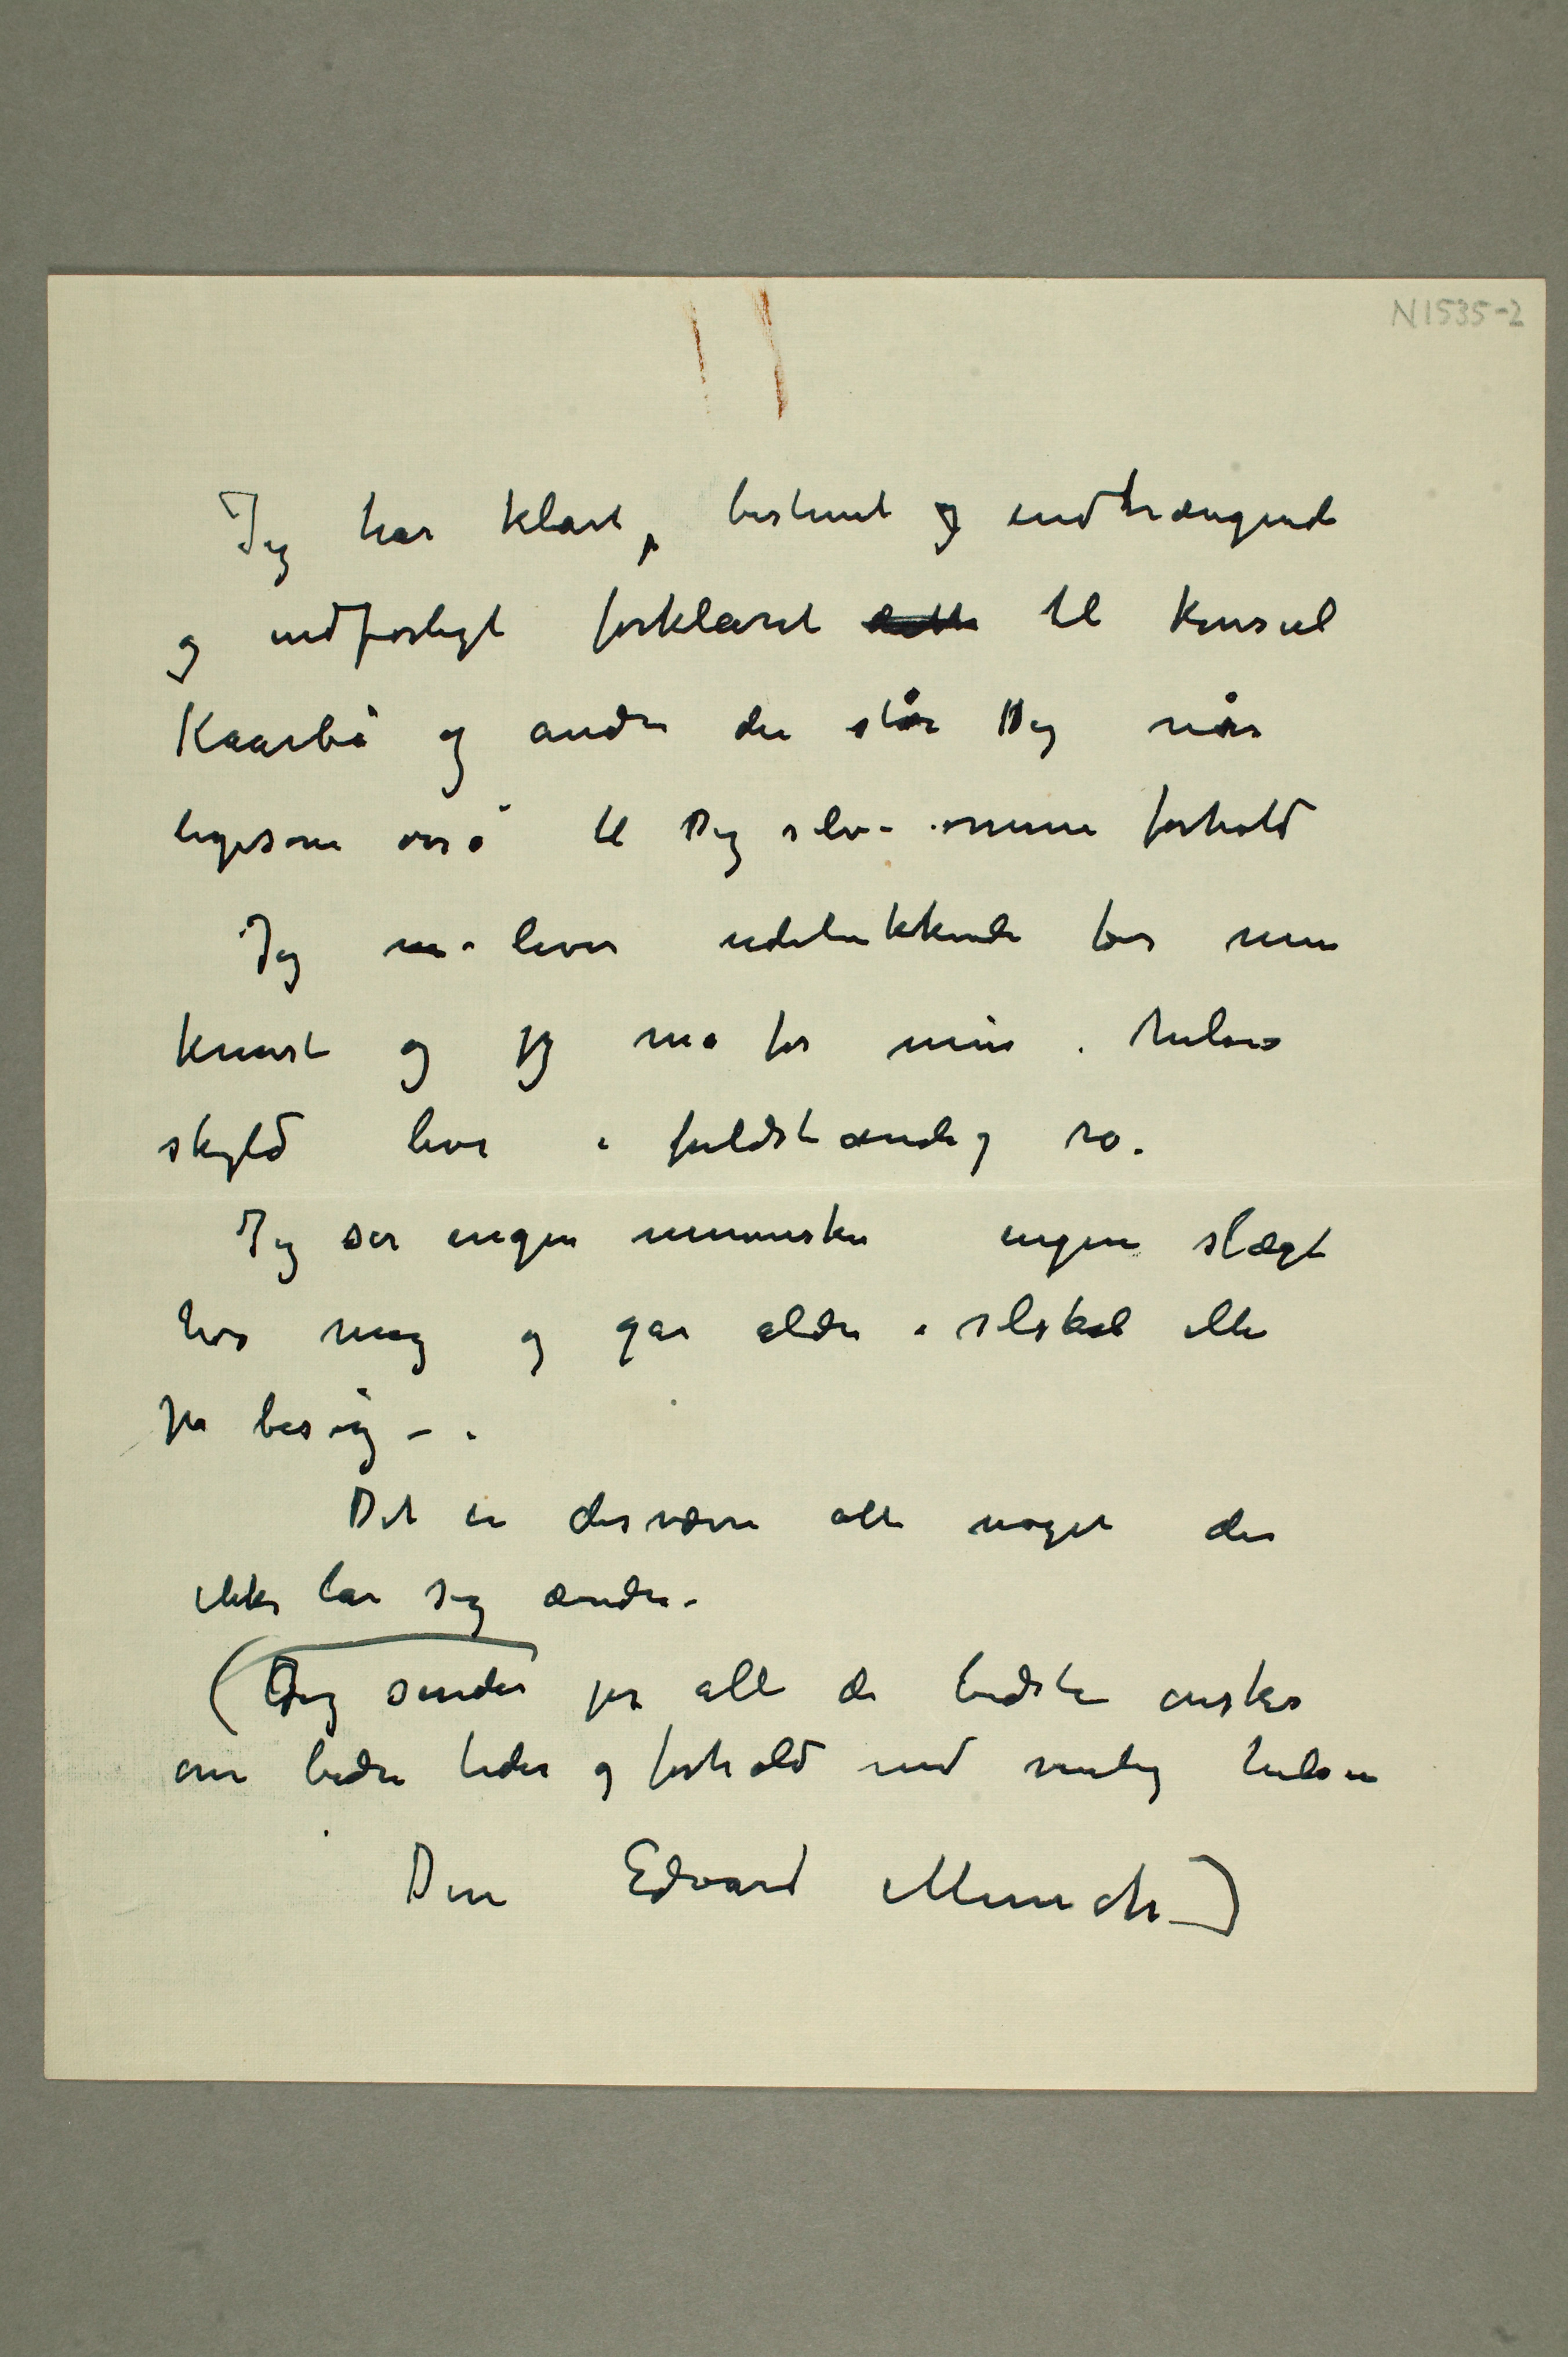 N 1535-2
Jeg har klart, bestemt og indtrængende
og udførligt forklaret dette til Konsul
Kaarbø og andre der står Dig nær
ligesom også til Dig selv – mine forhold
Jeg m lever udelukkende for min
kunst og jeg må for min helses
skyld leve i fuldstændig ro.
Jeg ser ingen mennesker ingen slægt
hos mig og går aldri i selskab eller
på besøg –
Det er desværre alt noget der
ikke lar sig ændre –
(Dig sender jeg alle de bedste ønsker
om bedre tider og forhold med venlig hilsen
Din Edvard Munch)